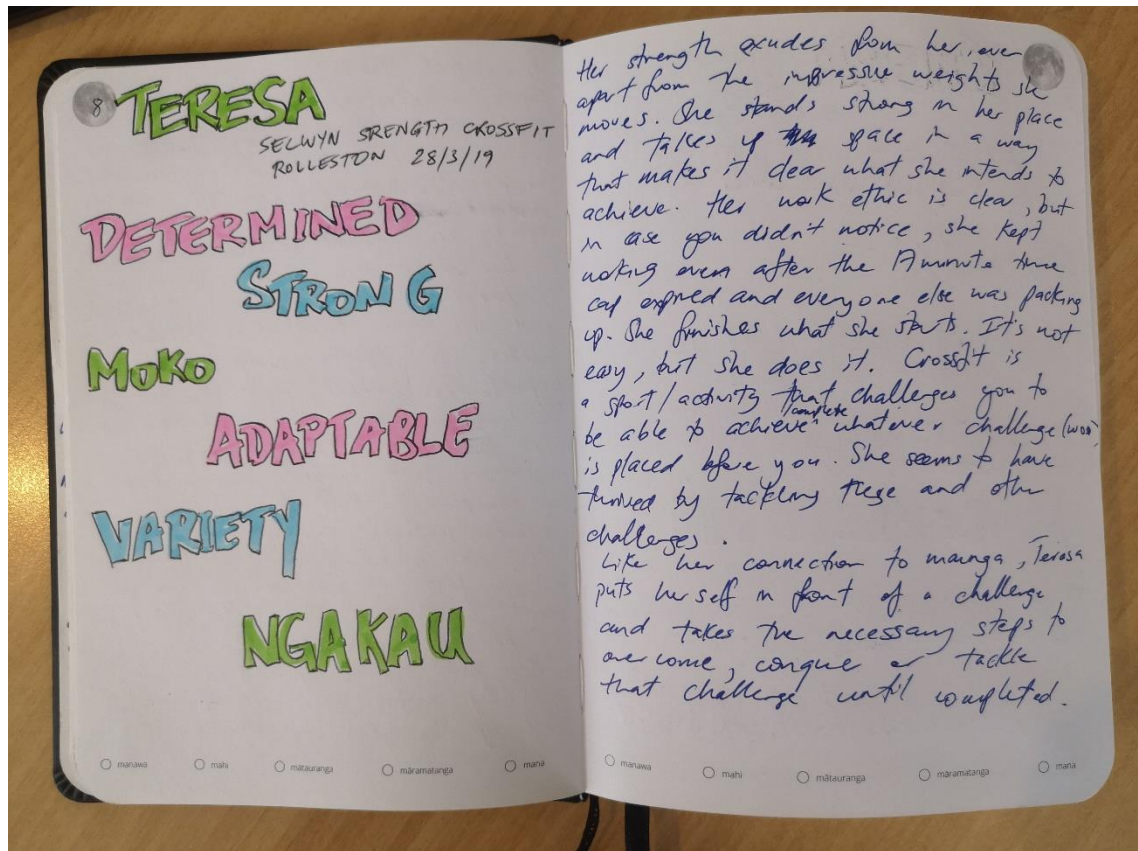 8
TERESA
SELWYN SRENGTH CROSSFIT
ROLLESTON 28/3/19
DETERMINED
STRONG
MOKO
ADAPTABLE
VARIETY
NGAKAU
manawa mahi mātauranga māramatanga mana
Her strength exudes from her, even
apart from the impressive weights she
moves. She stands strong in her place
and takes up space in a way
that makes it clear what she intends to
achieve. Her work ethic is clear, but
in case you didn't notice, she kept
working even after the 17 minute time
cap expired and everyone else was packing
up. She finishes what she starts. It's not
easy, but she does it. Crossfit is
a sport/activity that challenges you to
be able to achieve complete whatever challenge (WOD)
is placed before you. She seems to have
thrived by tackling these and other
challenges.
Like her connection to maunga, Teresa
puts herself in front of a challenge
and takes the necessary steps to
overcome, conquer or tackle
that challenge until completed.
manawa mahi mātauranga māramatanga mana